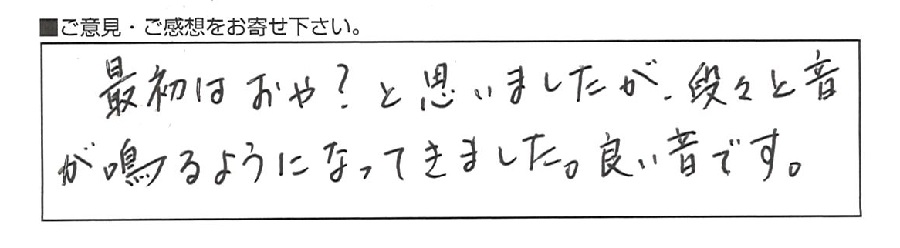 ■ご意見・ご感想をお寄せ下さい。
最初はおや?と思いましたが、段々と音
が鳴るようになってきました。良い音です。